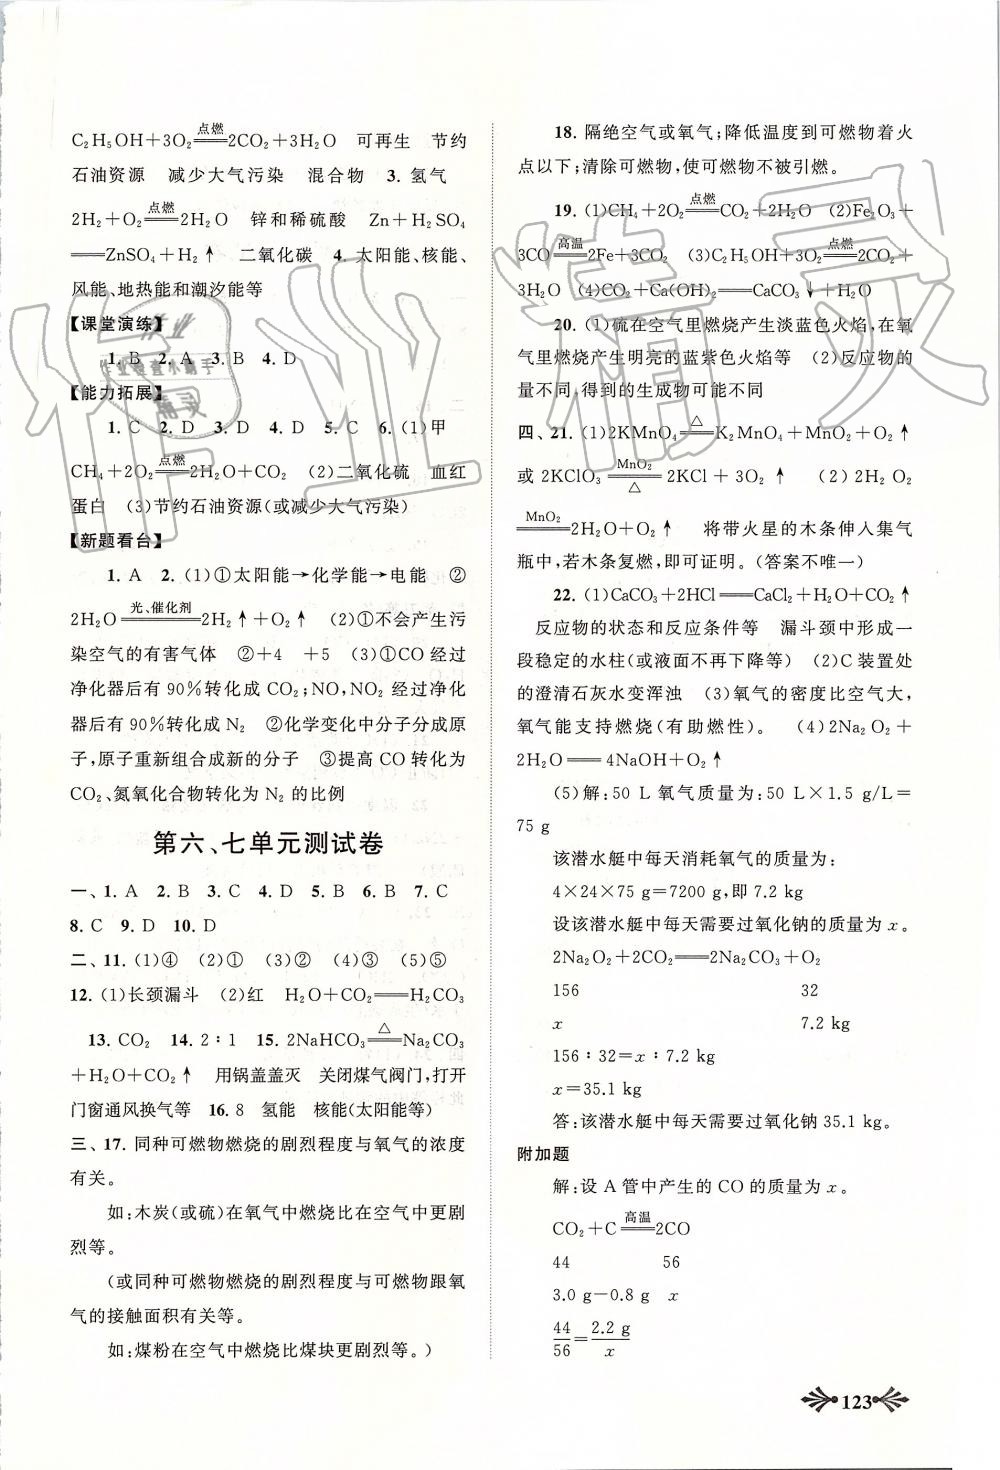 C₂H₅OH+3O₂ 点燃═══ 2CO₂+3H₂O 可再生 节约
石油资源 减少大气污染 混合物 3. 氢气
2H₂+O₂ 点燃═══ 2H₂O 锌和稀硫酸 Zn+H₂SO₄
═══ZnSO₄+H₂↑ 二氧化碳 4. 太阳能、核能、
风能、地热能和潮汐能等
【课堂演练】
1. B 2. A 3. B 4. D
【能力拓展】
1. C 2. D 3. D 4. D 5. C 6. (1)甲
CH₄+2O₂ 点燃═══ 2H₂O+CO₂ (2)二氧化硫 血红
蛋白 (3)节约石油资源(或减少大气污染)
【新题看台】
1. A 2. (1)①太阳能→化学能→电能 ②
2H₂O 光、催化剂═══ 2H₂↑+O₂↑ (2)①不会产生污
染空气的有害气体 ②+4 +5 (3)①CO 经过
净化器后有 90%转化成 CO₂;NO,NO₂ 经过净化
器后有 90%转化成 N₂ ②化学变化中分子分成原
子,原子重新组合成新的分子 ③提高 CO 转化为
CO₂、氮氧化合物转化为 N₂ 的比例
第六、七单元测试卷
一、1. A 2. B 3. C 4. D 5. B 6. B 7. C
8. C 9. D 10. D
二、11. (1)④ (2)① (3)② (4)③ (5)⑤
12. (1)长颈漏斗 (2)红 H₂O+CO₂═══H₂CO₃
13. CO₂ 14. 2∶1 15. 2NaHCO₃ △═══ Na₂CO₃
+H₂O+CO₂↑ 用锅盖盖灭 关闭煤气阀门,打开
门窗通风换气等 16. 8 氢能 核能(太阳能等)
三、17. 同种可燃物燃烧的剧烈程度与氧气的浓度
有关。
如:木炭(或硫)在氧气中燃烧比在空气中更剧
烈等。
(或同种可燃物燃烧的剧烈程度与可燃物跟氧
气的接触面积有关等。
如:煤粉在空气中燃烧比煤块更剧烈等。)
18. 隔绝空气或氧气;降低温度到可燃物着火
点以下;清除可燃物,使可燃物不被引燃。
19. (1)CH₄+2O₂ 点燃═══ CO₂+2H₂O (2)Fe₂O₃+
3CO 高温═══ 2Fe+3CO₂ (3)C₂H₅OH+3O₂ 点燃═══ 2CO₂+
3H₂O (4)CO₂+Ca(OH)₂═══CaCO₃↓+H₂O
20. (1)硫在空气里燃烧产生淡蓝色火焰,在氧
气里燃烧产生明亮的蓝紫色火焰等 (2)反应物的
量不同,得到的生成物可能不同
四、21. (1)2KMnO₄ △═══ K₂MnO₄+MnO₂+O₂↑
或 2KClO₃ MnO₂═══△ 2KCl+3O₂↑ (2)2H₂O₂
MnO₂═══ 2H₂O+O₂↑ 将带火星的木条伸入集气
瓶中,若木条复燃,即可证明。(答案不唯一)
22. (1)CaCO₃+2HCl═══CaCl₂+H₂O+CO₂↑
反应物的状态和反应条件等 漏斗颈中形成一
段稳定的水柱(或液面不再下降等) (2)C 装置处
的澄清石灰水变浑浊 (3)氧气的密度比空气大,
氧气能支持燃烧(有助燃性)。 (4)2Na₂O₂+
2H₂O═══4NaOH+O₂↑
(5)解:50 L 氧气质量为:50 L×1.5 g/L=
75 g
该潜水艇中每天消耗氧气的质量为:
4×24×75 g=7200 g,即 7.2 kg
设该潜水艇中每天需要过氧化钠的质量为 x。
2Na₂O₂+2CO₂═══2Na₂CO₃+O₂
156 32
x 7.2 kg
156∶32=x∶7.2 kg
x=35.1 kg
答:该潜水艇中每天需要过氧化钠 35.1 kg。
附加题
解:设 A 管中产生的 CO 的质量为 x。
CO₂+C 高温═══ 2CO
44 56
3.0 g−0.8 g x
44/56=2.2 g/x
123
作业精灵